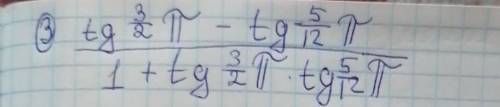 ③ (tg 3/2 π - tg 5/12 π) / (1 + tg 3/2 π · tg 5/12 π)